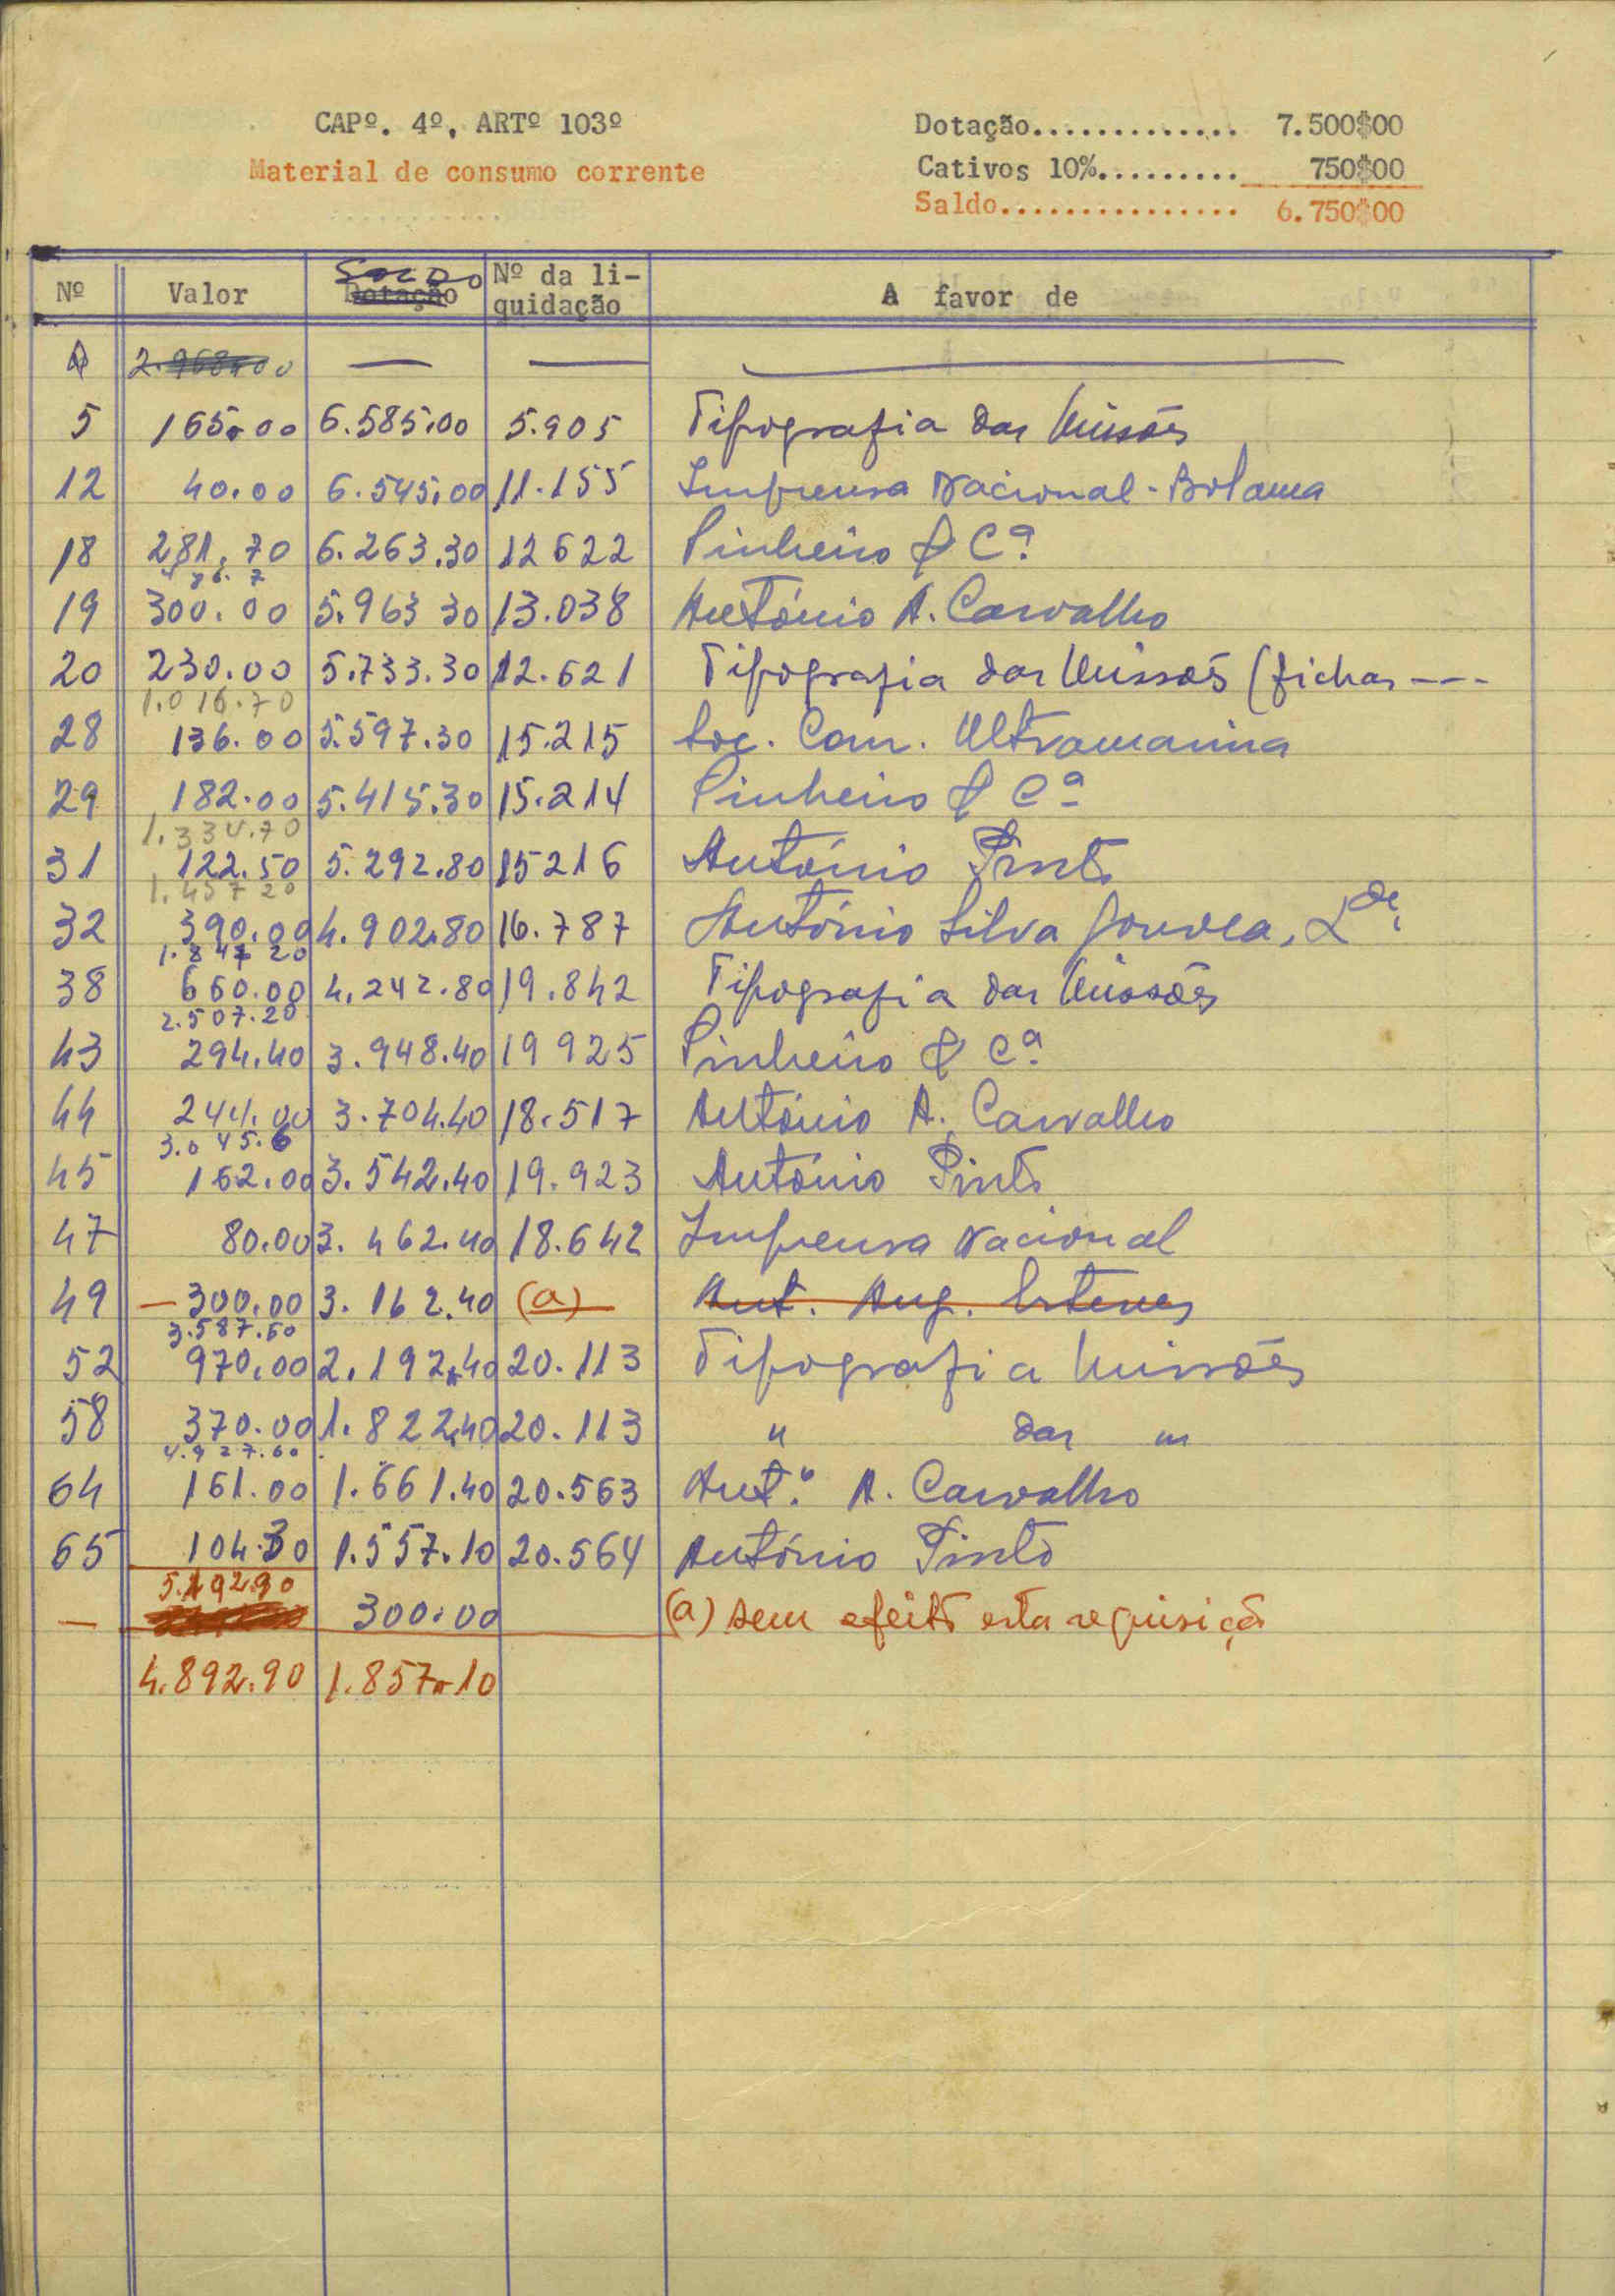 CAPº. 4º, ARTº 103º
Material de consumo corrente
Dotação............. 7.500$00
Cativos 10%......... 750$00
Saldo............... 6.750$00
Nº Valor Saldo Dotação Nº da li-quidação A favor de
2.968.00 — — —
5 165.00 6.585.00 5.905 Tipografia das Missões
12 40.00 6.545.00 11.155 Imprensa Nacional - Bolama
18 281.70 6.263.30 12622 Pinheiro & Cª
486.7
19 300.00 5.963 30 13.038 António A. Carvalho
20 230.00 5.733.30 12.621 Tipografia das Missões (fichas ---
1.016.70
28 136.00 5.597.30 15.215 Soc. Com. Ultramarina
29 182.00 5.415.30 15.214 Pinheiro & Cª
1.334.70
31 122.50 5.292.80 15216 António Pinto
1.457 20
32 390.00 4.902.80 16.787 António Silva Gouvea, Lda.
1.847 20
38 660.00 4.242.80 19.842 Tipografia das Missões
2.507.20
43 294.40 3.948.40 19925 Pinheiro & Cª
44 244.00 3.704.40 18.517 António A. Carvalho
3.045.6
45 162.00 3.542.40 19.923 António Pinto
47 80.00 3.462.40 18.642 Imprensa Nacional
49 — 300.00 3.162.40 (a) Ant. Aug. Esteves
3.587.60
52 970.00 2.192.40 20.113 Tipografia Missões
58 370.00 1.822.40 20.113 " das "
4.927.60
64 161.00 1.661.40 20.563 Antº. A. Carvalho
65 104.30 1.557.10 20.564 António Pinto
5.192.90
— 300.00 (a) sem efeito esta requisição
4.892.90 1.857.10